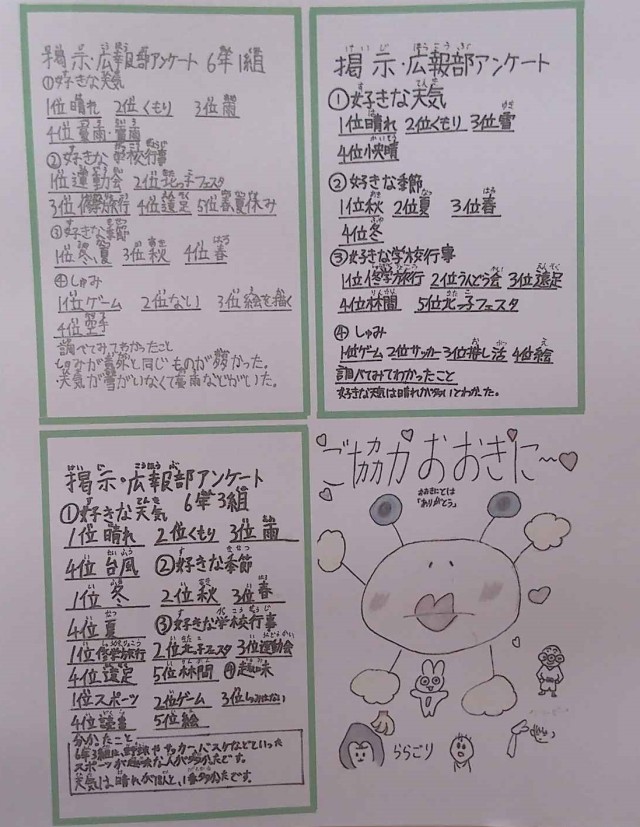 掲示・広報部アンケート 6年1組
①好きな天気
1位晴れ 2位くもり 3位雨
4位雷雨・
②好きな学校行事
1位運動会 2位北っ子フェスタ
3位修学旅行 4位遠足 5位長夏休み
③好きな季節
1位冬,夏 3位秋 4位春
④しゅみ
1位ゲーム 2位なし 3位絵を描く
4位空手
調べてみてわかったこと
しゅみが意外と同じものが多かった。
天気が雪がいなくて雷雨などがいた。
掲示・広報部アンケート
①好きな天気
1位晴れ 2位くもり 3位雪
4位快晴
②好きな季節
1位秋 2位夏 3位春
4位冬
③好きな学校行事
1位修学旅行 2位うんどう会 3位遠足
4位林間 5位北っ子フェスタ
④しゅみ
1位ゲーム 2位サッカー 3位推し活 4位絵
調べてみてわかったこと
好きな天気は晴れが多いとわかった。
掲示・広報部アンケート
6年3組
①好きな天気
1位晴れ 2位くもり 3位雨
4位台風 ②好きな季節
1位冬 2位秋 3位春
4位夏 ③好きな学校行事
1位修学旅行 2位北っ子フェスタ 3位運動会
4位遠足 5位林間 ④趣味
1位スポーツ 2位ゲーム 3位しゅみはない
4位読書 5位絵
分かたこと
6年3組は、野球やサッカー、バスケなどといった
スポーツが趣味な人が多かったです。
天気は晴れが と、1番多かたです。
ご協力おおきに〜
おおきにとは
「ありがとう」
ららごり